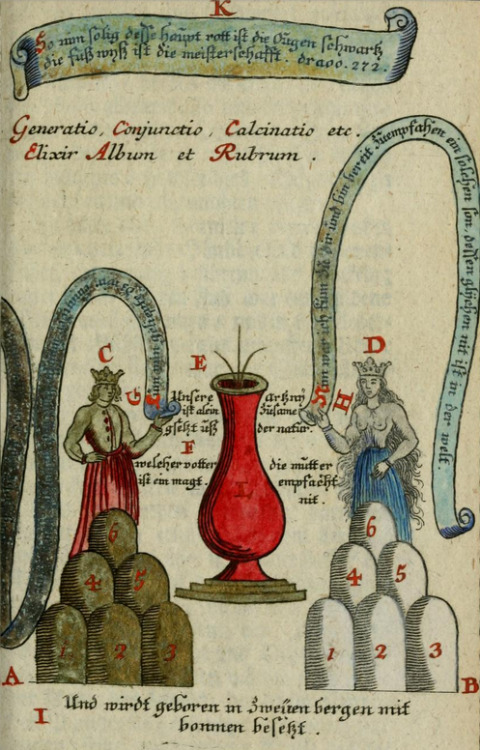 K
So nun solig desse haupt rott ist die Ougen schwartz
die fuß wyß ist die meisterschafft. draoo. 272.
Generatio, Conjunctio, Calcinatio etc.
Elixir Album et Rubrum.
Nun war ich kum zu dir und bin bereit zu empfahen ein solchen son, dessen glychen nit ist in der welt.
C
D
E
G
H
Unsere artzny
ist alein Zusame
gsetzt uß der natur.
F
welcher votter die mutter
ist ein magt. empfacht
nit.
L
6
4 5
1 2 3
6
4 5
1 2 3
A
B
I
Und wirdt geboren in Zweüen bergen mit
bonmen besetzt.